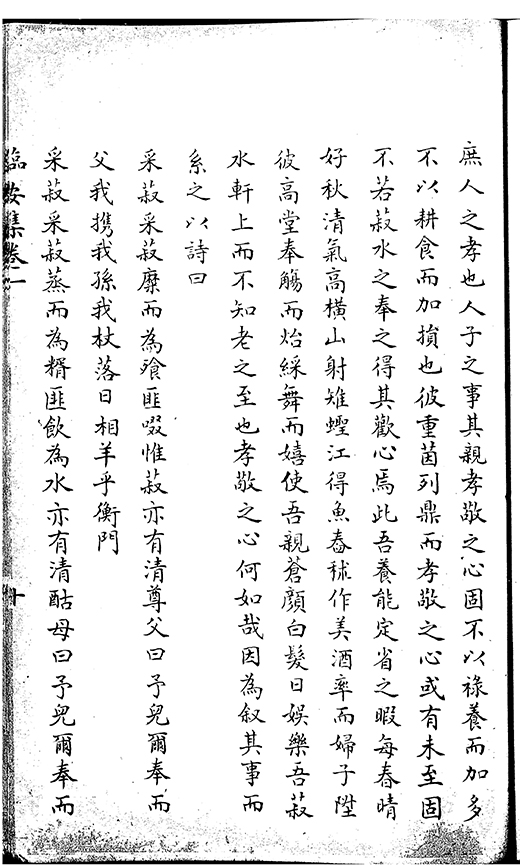 庶人之孝也人子之事其親孝敬之心固不以祿養而加多
不以耕食而加損也彼重茵列鼎而孝敬之心或有未至固
不若菽水之奉之得其歡心焉此吾養能定省之暇每春晴
好秋清氣高橫山射雉蟶江得魚舂秫作美酒率而婦子陞
彼高堂奉觴而炲綵舞而嬉使吾親蒼顏白髮日娯樂吾菽
水軒上而不知老之至也孝敬之心何如哉因為叙其事而
系之以詩曰
采菽采菽糜而為飱匪啜惟菽亦有清尊父曰予兒爾奉而
父我携我孫我杖落日相羊乎衡門
采菽采菽蒸而為糈匪飲為水亦有清酤母曰予兒爾奉而
臨安集卷二
十